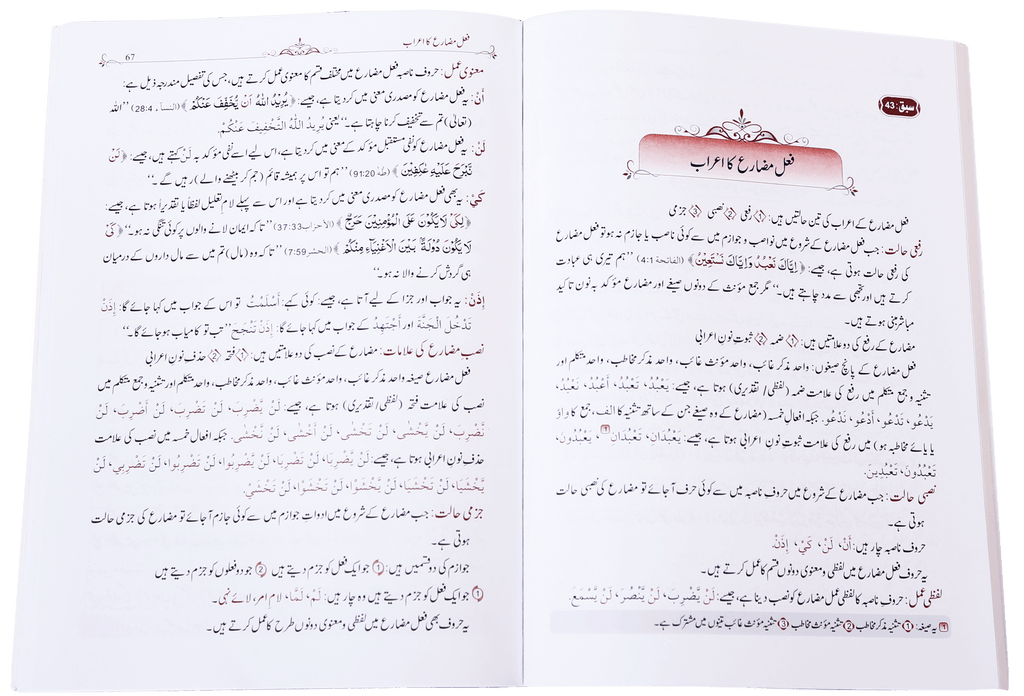 سبق: 43
فعل مضارع کا اعراب
فعل مضارع کے اعراب کی تین حالتیں ہیں: ① رفعی ② نصبی ③ جزمی
رفعی حالت: جب فعل مضارع کے شروع میں نواصب و جوازم میں سے کوئی ناصب یا جازم نہ ہو تو فعل مضارع
کی رفعی حالت ہوتی ہے، جیسے: ﴿إِيَّاكَ نَعْبُدُ وَإِيَّاكَ نَسْتَعِينُ﴾ (الفاتحة 4:1) ’’ہم تیری ہی عبادت
کرتے ہیں اور تجھی سے مدد چاہتے ہیں۔‘‘ مگر جمع مؤنث کے دونوں صیغے اور مضارع مؤکد بہ نون تاکید
مباشر مبنی ہوتے ہیں۔
مضارع کے رفع کی دو علامتیں ہیں: ① ضمہ ② ثبوت نون اعرابی
فعل مضارع کے پانچ صیغوں: واحد مذکر غائب، واحد مؤنث غائب، واحد مذکر مخاطب، واحد متکلم اور
تثنیہ و جمع متکلم میں رفع کی علامت ضمہ (لفظی/ تقدیری) ہوتا ہے، جیسے: يَعْبُدُ، تَعْبُدُ، أَعْبُدُ، نَعْبُدُ،
يَدْعُو، تَدْعُو، أَدْعُو، نَدْعُو. جبکہ افعالِ خمسہ (مضارع کے وہ صیغے جن کے ساتھ تثنیہ کا الف، جمع کا واؤ
یا یائے مخاطبہ ہو) میں رفع کی علامت ثبوتِ نونِ اعرابی ہوتا ہے، جیسے: يَعْبُدَانِ، تَعْبُدَانِ، يَعْبُدُونَ،
تَعْبُدُونَ، تَعْبُدِينَ.
نصبی حالت: جب مضارع کے شروع میں حروفِ ناصبہ میں سے کوئی حرف آجائے تو مضارع کی نصبی حالت
ہوتی ہے۔
حروف ناصبہ چار ہیں: أَنْ، لَنْ، كَيْ، إِذَنْ.
یہ حروف فعل مضارع میں لفظی و معنوی دونوں قسم کا عمل کرتے ہیں۔
لفظی عمل: حروف ناصبہ کا لفظی عمل مضارع کو نصب دینا ہے، جیسے: لَنْ يَّضْرِبَ، لَنْ يَّنْصُرَ، لَنْ يَّسْمَعَ.
یہ صیغہ: ① تثنیہ مذکر مخاطب ② تثنیہ مؤنث مخاطب ③ تثنیہ مؤنث غائب تینوں میں مشترک ہے۔
فعل مضارع کا اعراب
67
معنوی عمل: حروف ناصبہ فعل مضارع میں مختلف قسم کا معنوی عمل کرتے ہیں، جس کی تفصیل مندرجہ ذیل ہے:
أَنْ: یہ فعل مضارع کو مصدری معنی میں کر دیتا ہے، جیسے: ﴿يُرِيدُ اللهُ أَنْ يُّخَفِّفَ عَنْكُمْ﴾ (النساء 28:4) ’’اللہ
(تعالیٰ) تم سے تخفیف کرنا چاہتا ہے۔‘‘ یعنی يُرِيدُ اللهُ التَّخْفِيفَ عَنْكُمْ.
لَنْ: یہ فعل مضارع کو نفی مستقبل مؤکد کے معنی میں کر دیتا ہے، اس لیے اسے نفی مؤکد بہ لَنْ کہتے ہیں، جیسے: ﴿لَنْ
نَّبْرَحَ عَلَيْهِ عٰكِفِينَ﴾ (طہٰ 91:20) ’’ہم تو اس پر ہمیشہ قائم (جم کر بیٹھنے والے) رہیں گے۔‘‘
كَيْ: یہ بھی فعل مضارع کو مصدری معنی میں کر دیتا ہے اور اس سے پہلے لام تعلیل لفظاً یا تقدیراً ہوتا ہے، جیسے:
﴿لِكَيْ لَا يَكُوْنَ عَلَى الْمُؤْمِنِيْنَ حَرَجٌ﴾ (الأحزاب 37:33) ’’تاکہ ایمان لانے والوں پر کوئی تنگی نہ ہو۔‘‘ ﴿كَيْ
لَا يَكُوْنَ دُوْلَةً بَيْنَ الْأَغْنِيَاءِ مِنْكُمْ﴾ (الحشر 7:59) ’’تاکہ وہ (مال) تم میں سے مال داروں کے درمیان
ہی گردش کرنے والا نہ ہو۔‘‘
إِذَنْ: یہ جواب اور جزا کے لیے آتا ہے، جیسے: کوئی کہے: أَسْلَمْتُ تو اس کے جواب میں کہا جائے گا: إِذَنْ
تَدْخُلَ الْجَنَّةَ اور أَجْتَهِدُ کے جواب میں کہا جائے گا: إِذَنْ تَنْجَحَ ’’تب تو کامیاب ہو جائے گا۔‘‘
نصب مضارع کی علامات: مضارع کے نصب کی دو علامتیں ہیں: ① فتحہ ② حذف نونِ اعرابی
فعل مضارع صیغہ واحد مذکر غائب، واحد مؤنث غائب، واحد مذکر مخاطب، واحد متکلم اور تثنیہ و جمع متکلم میں
نصب کی علامت فتحہ (لفظی/ تقدیری) ہوتا ہے، جیسے: لَنْ يَّضْرِبَ، لَنْ تَضْرِبَ، لَنْ أَضْرِبَ، لَنْ
نَّضْرِبَ، لَنْ يَّخْشٰى، لَنْ تَخْشٰى، لَنْ أَخْشٰى، لَنْ نَّخْشٰى. جبکہ افعال خمسہ میں نصب کی علامت
حذف نون اعرابی ہوتا ہے، جیسے: لَنْ يَّضْرِبَا، لَنْ تَضْرِبَا، لَنْ يَّضْرِبُوا، لَنْ تَضْرِبُوا، لَنْ تَضْرِبِي، لَنْ
يَّخْشَيَا، لَنْ تَخْشَيَا، لَنْ يَّخْشَوْا، لَنْ تَخْشَوْا، لَنْ تَخْشَيْ.
جزمی حالت: جب مضارع کے شروع میں ادواتِ جوازم میں سے کوئی جازم آجائے تو مضارع کی جزمی حالت
ہوتی ہے۔
جوازم کی دو قسمیں ہیں: ① جو ایک فعل کو جزم دیتے ہیں ② جو دو فعلوں کو جزم دیتے ہیں
① جو ایک فعل کو جزم دیتے ہیں وہ چار ہیں: لَمْ، لَمَّا، لام امر، لائے نہی۔
یہ حروف بھی فعل مضارع میں لفظی و معنوی دونوں طرح کا عمل کرتے ہیں۔